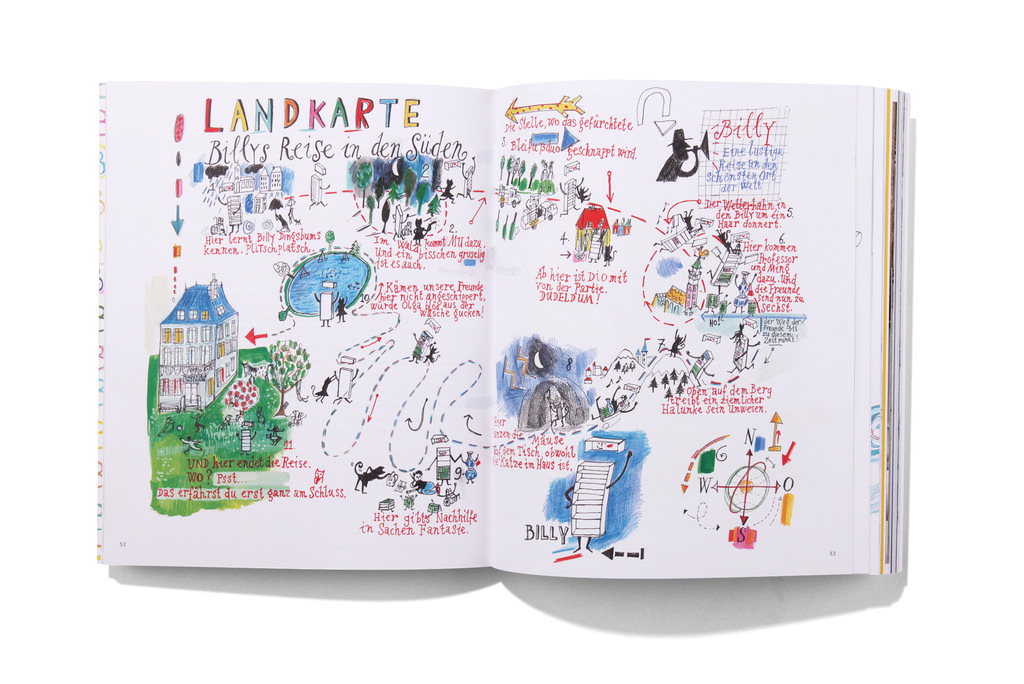 LANDKARTE
Billys Reise in den Süden
1.
Hier lernt Billy Dingsbums
kennen. Plitschplatsch.
2
2.
Im Wald kommt MU dazu.
Und ein bisschen gruselig
ist es auch.
10.
Kämen unsere Freunde
hier nicht angeschippert,
würde Olga nur aus der
Wäsche gucken!
11.
UND hier endet die Reise.
WO? Psst...
Das erfährst du erst ganz am Schluss.
9.
Hier gibts Nachhilfe
in Sachen Fantasie.
52
Die Stelle, wo das gefürchtete
3. Bleifußduo geschnappt wird.
4.
Ab hier ist Dio mit
von der Partie.
DUDELDUM!
Billy
Eine lustige
Reise an den
schönsten Ort
der Welt
Der Wetterhahn, in
den Billy um ein
Haar donnert.
5.
6.
Hier kommen
Professor
und Ming
dazu. Und
die Freunde
sind nun zu
sechst.
HO!
der Weg der
Freunde bis
zu diesem
Zeitpunkt!
7.
Oben auf dem Berg
treibt ein ziemlicher
Halunke sein Unwesen.
8
Hier
tanzen die Mäuse
auf dem Tisch, obwohl
die Katze im Haus ist.
BILLY
N
W
O
S
53